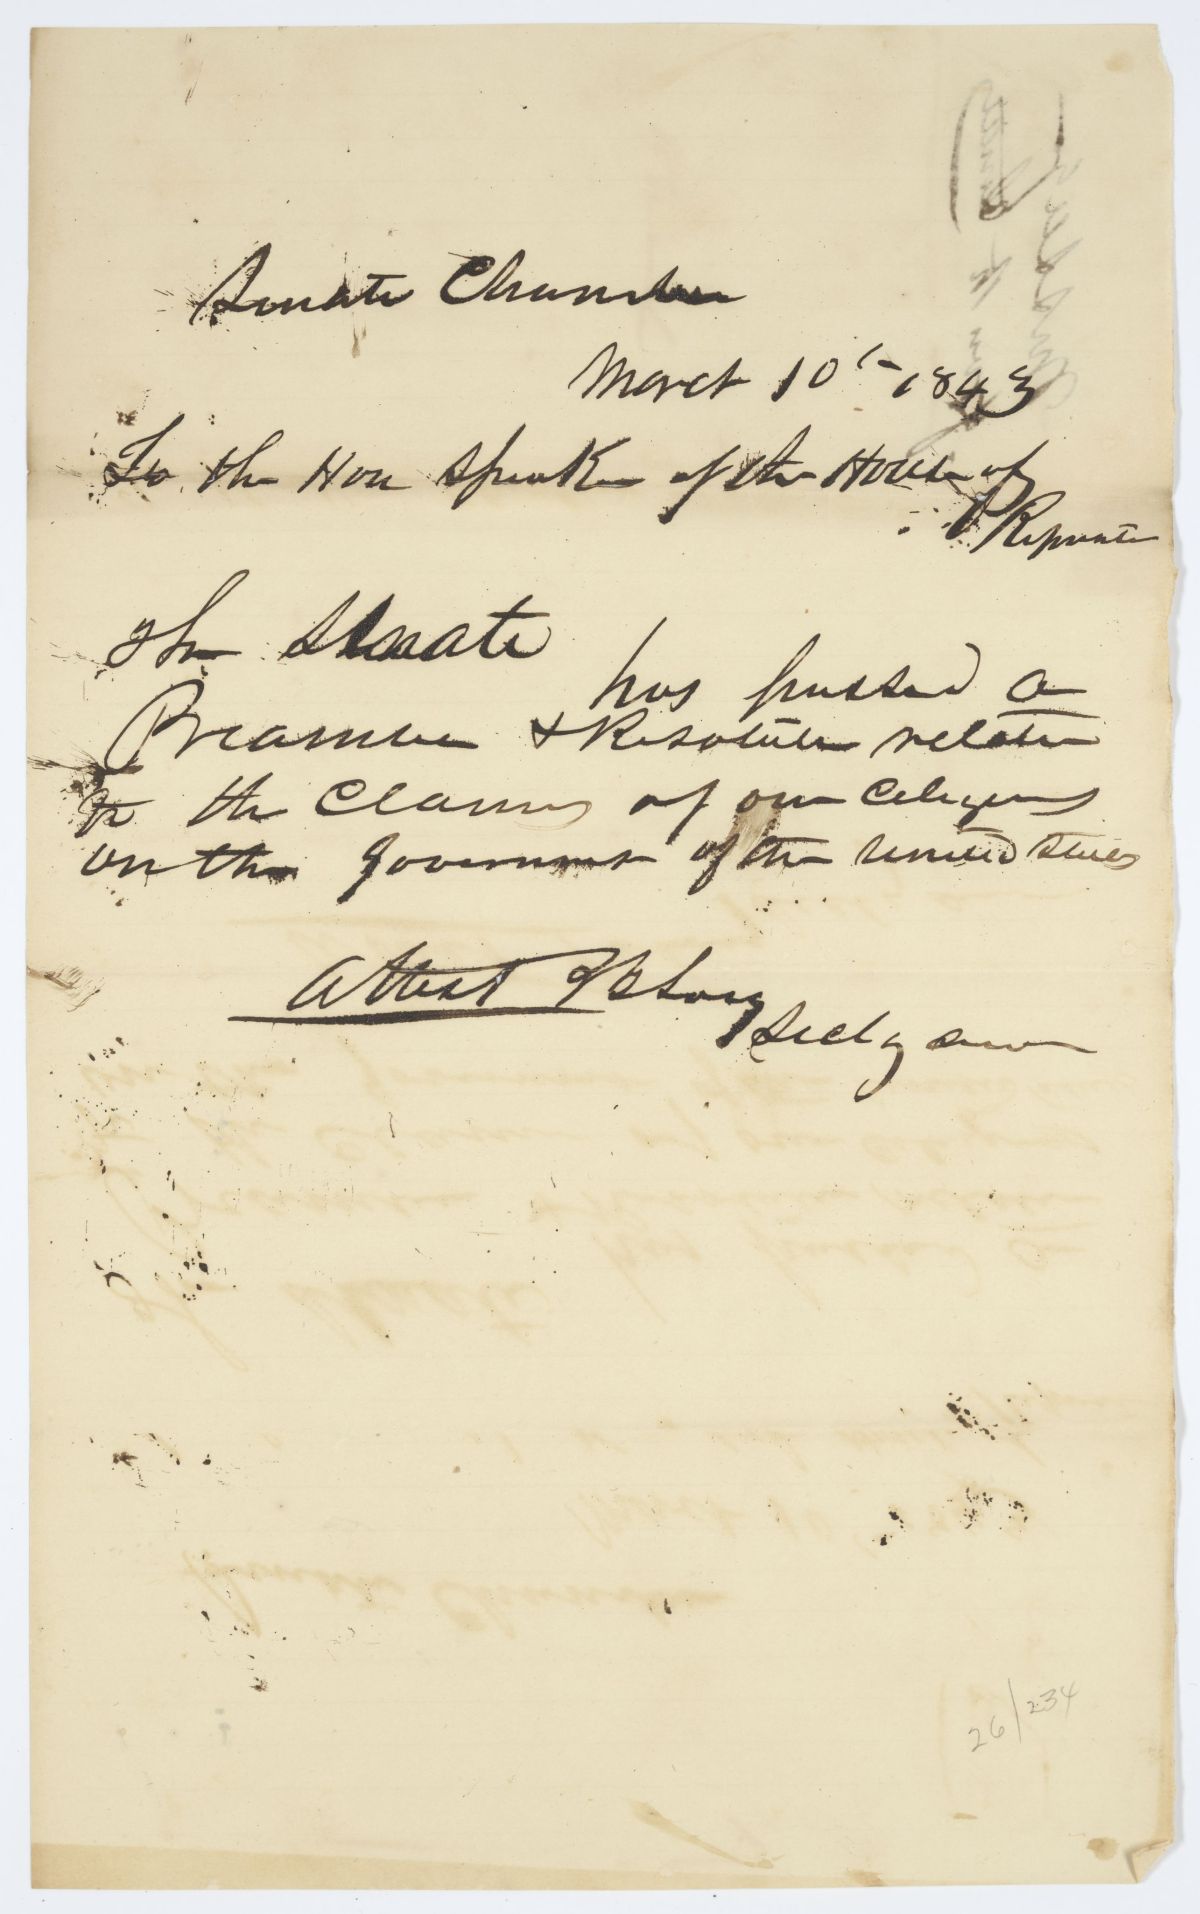 Senate Chamber
March 10th 1843
To the Hon Speaker of the House of
Reprents
The Senate
has passed a
Preamble & Resolution relative
to the Claims of our Citizens
on the Government of the United States
Attest
Secty Senate
26/234